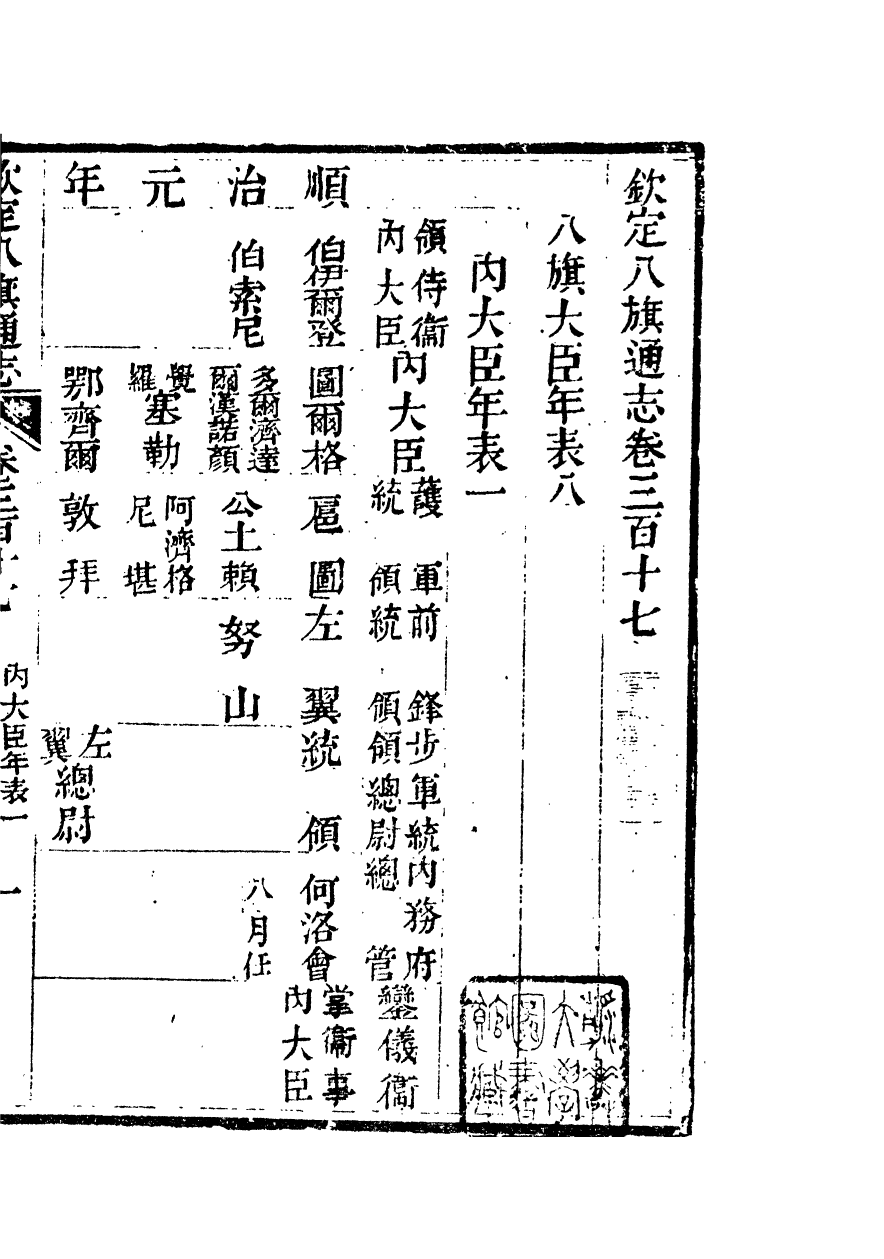 欽定八旗通志卷三百十七
八旗大臣年表八
內大臣年表一
領侍衛內大臣 內大臣 護軍統領 前鋒統領 步軍統領總尉 內務府總管 鑾儀衛
順 伯伊爾登 圖爾格 扈圖 左翼統領 何洛會 掌衛事內大臣
治 伯索尼 多爾濟達爾漢諾顏 公土賴 努山 八月任
元 覺羅塞勒 阿濟格尼堪
年 鄂齊爾 敦拜 左翼總尉
欽定八旗通志 卷三百十七 內大臣年表一 一